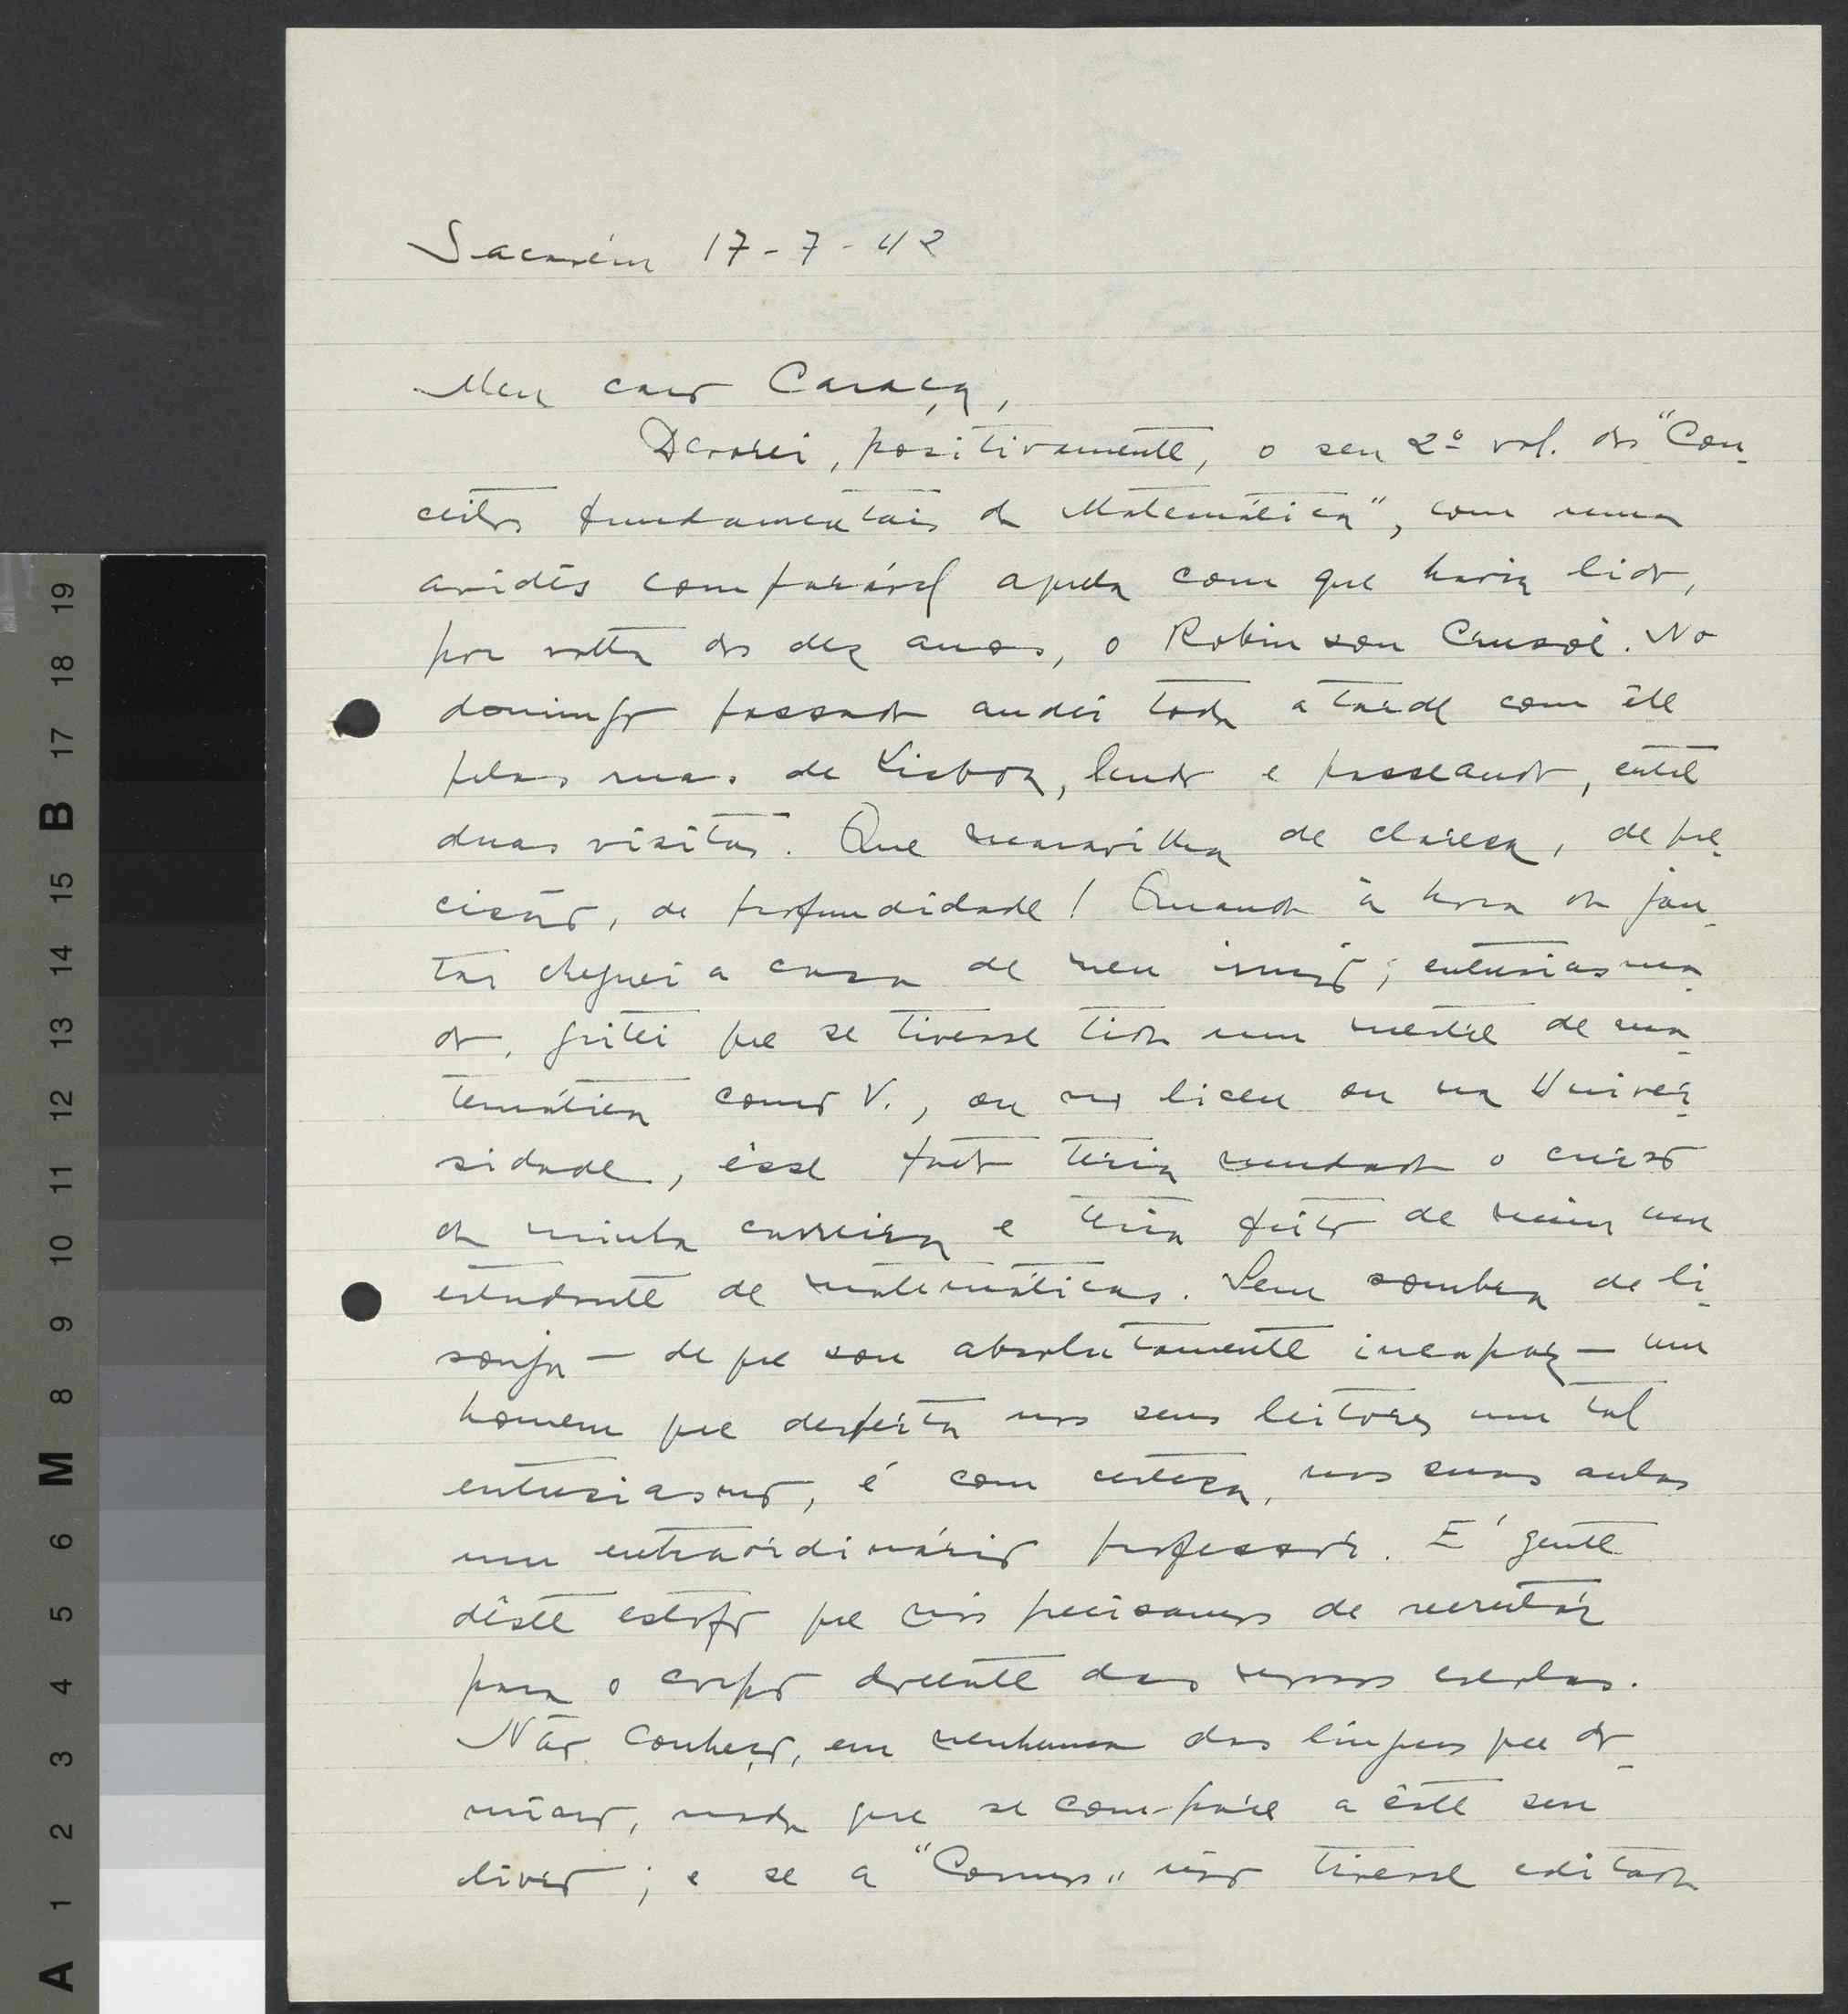 Sacavém 17-7-42
Meu caro Caraça,
Devorei, positivamente, o seu 2º vol. dos "Con-
ceitos fundamentais da Matemática", com uma
avidês comparável àquela com que havia lido,
por volta dos dez anos, o Robinson Crusoé. No
domingo passado andei toda a tarde com êle
pelas ruas de Lisboa, lendo e passeando, entre
duas visitas. Que maravilha de clareza, de pre-
cisão, de profundidade! Quando à hora do jan-
tar cheguei a casa de meu irmão, entusiasma-
do, gritei que se tivesse tido um mestre de ma-
temática como V., ou no liceu ou na Univer-
sidade, êsse facto teria mudado o curso
da minha carreira e teria feito de mim um
estudante de matemáticas. Sem sombra de li-
sonja — de que sou absolutamente incapaz — um
homem que desperta nos seus leitores um tal
entusiasmo, é com certeza, nas suas aulas
um extraordinário professor. É gente
dêste estofo que nós precisamos de recrutar
para o corpo docente das nossas escolas.
Não conheço, em nenhuma das línguas que do-
mino, nada que se compare a êste seu
livro; e se a "Cosmos" não tivesse editado
A 1 2 3 4 5 6 M 8 9 10 11 12 13 14 15 B 17 18 19